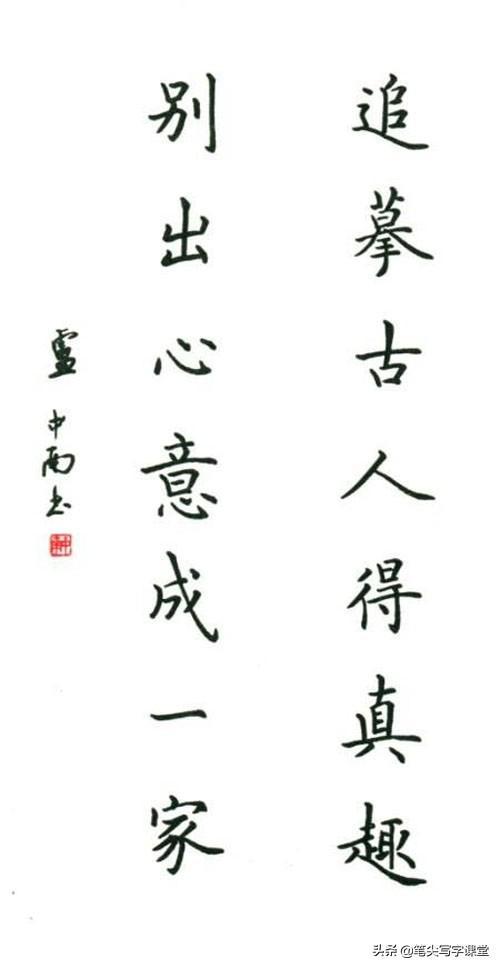 追摹古人得真趣
别出心意成一家
盧中南书
头条@笔尖写字课堂